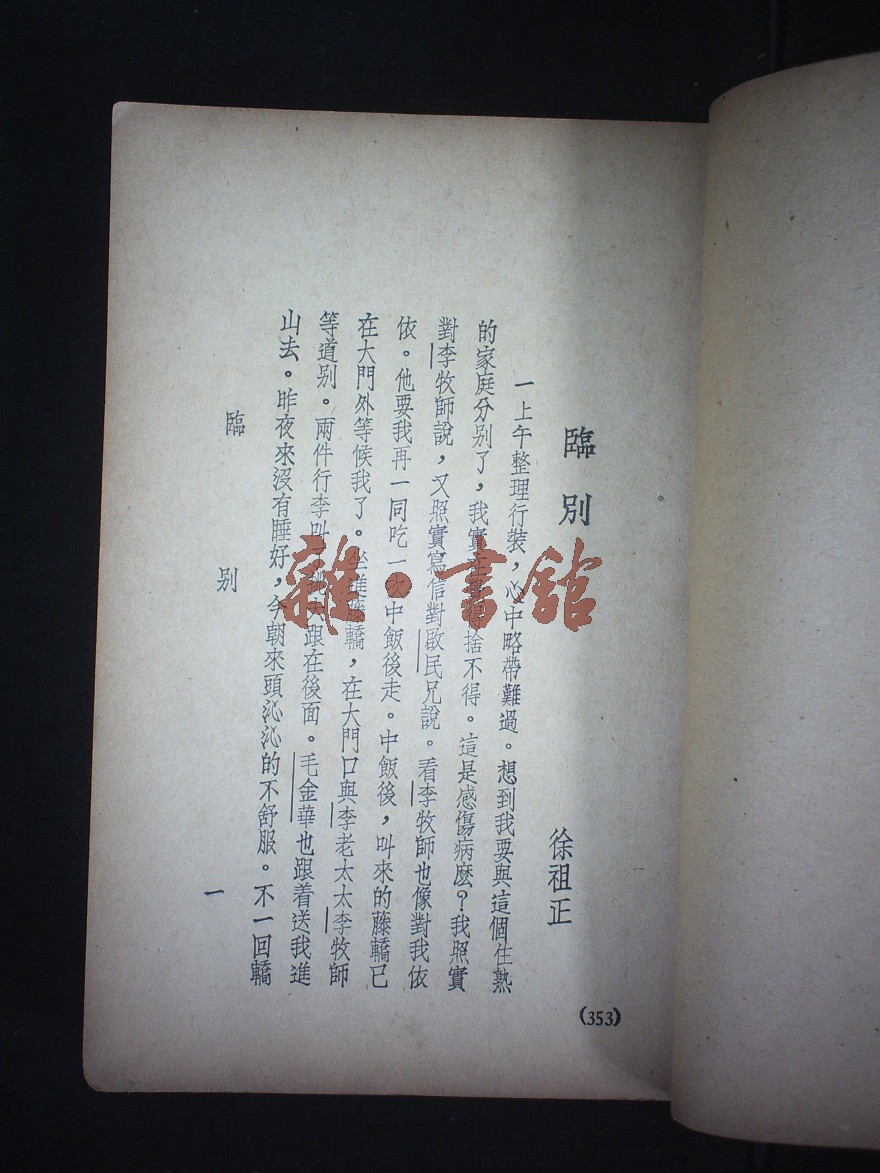 臨別
徐祖正
(353)
一上午整理行裝，心中略帶難過。想到我要與這個住熟
的家庭分別了，我實捨不得。這是感傷病麽？我照實
對李牧師說，又照實寫信對啟民兄說。看李牧師也像對我依
依。他要我再一同吃一次中飯後走。中飯後，叫來的藤轎已
在大門外等候我了。坐進藤轎，在大門口與李老太太李牧師
等道別。兩件行李叫夫跟在後面。毛金華也跟着送我進
山去。昨夜來沒有睡好，今朝來頭沁沁的不舒服。不一回轎
臨別
一
雜·書館